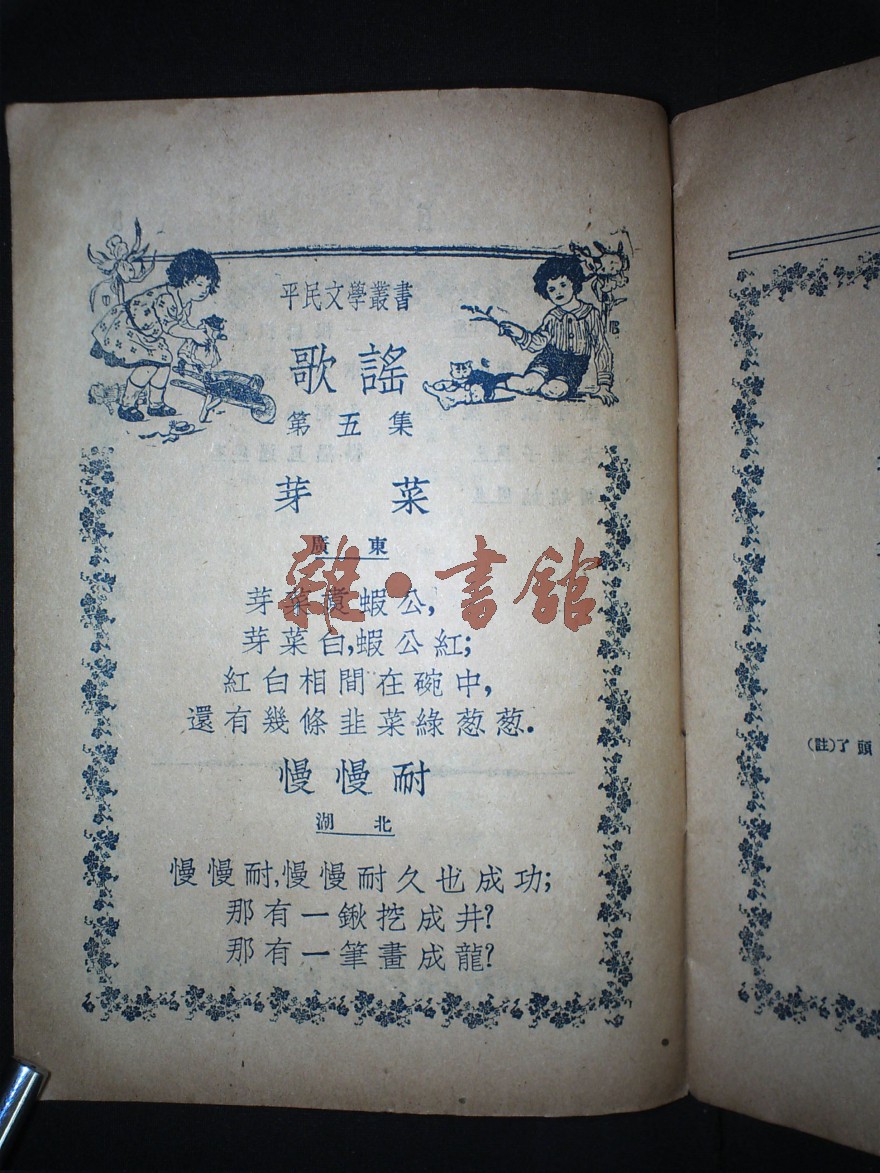 平民文學叢書
歌謠
第五集
芽菜
廣東
芽菜煑蝦公,
芽菜白,蝦公紅;
紅白相間在碗中,
還有幾條韭菜綠葱葱.
慢慢耐
湖北
慢慢耐,慢慢耐久也成功;
那有一鍬挖成井?
那有一筆畫成龍?
雜·書館
頭了(註)